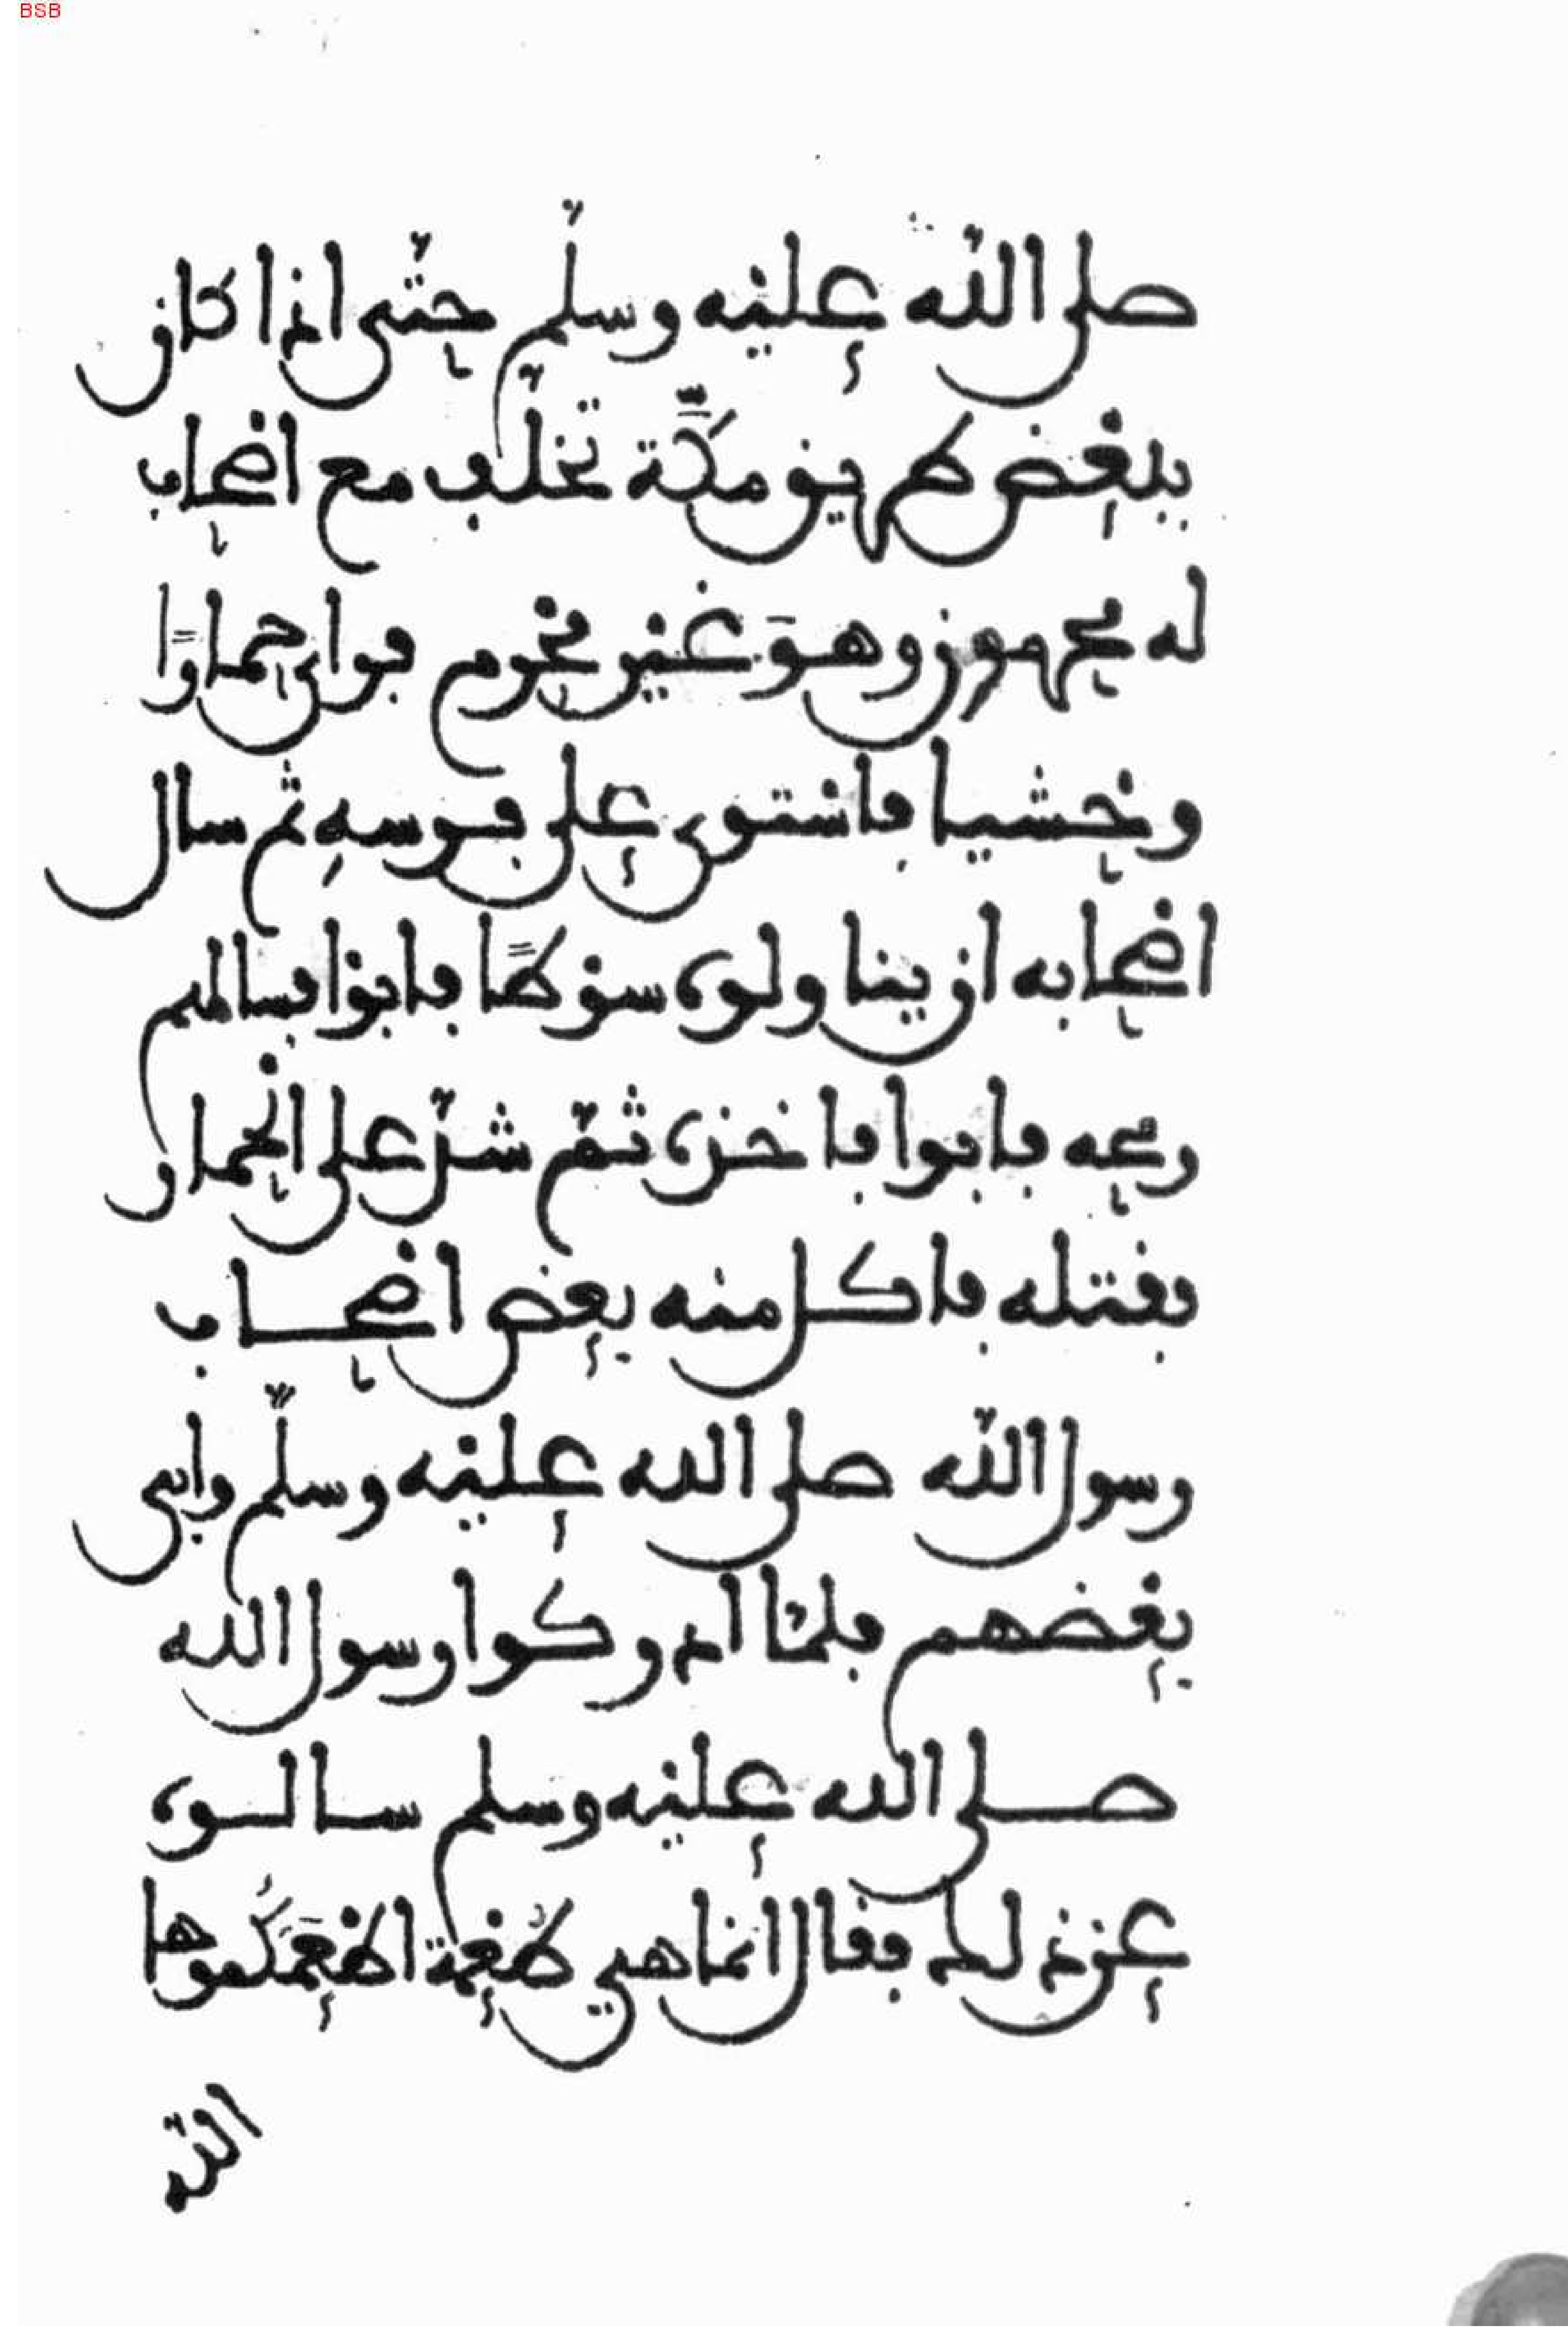 BSB
صلى اللّه عليه وسلّم حتّى اذا كان
ببعض طريق مكّة تخلّف مع اصحاب
له محرمين وهوَ غير محرم فراى حمارًا
وحشيا فاستوى على فرسهِ ثم سال
اصحابه ان يناولوه سوطًا فابوا فسالهم
رمحه فابوا فاخذه ثمّ شدّ على الحمار
فقتله فاكل منه بعض اصحاب
رسول اللّه صلى الله عليه وسلّم وابى
بعضهم فلمّا ادركوا رسول الله
صلى الله عليه وسلم سالوه
عن ذلك فقال انما هي طُعمة اطعَمَكُموها
اللّه